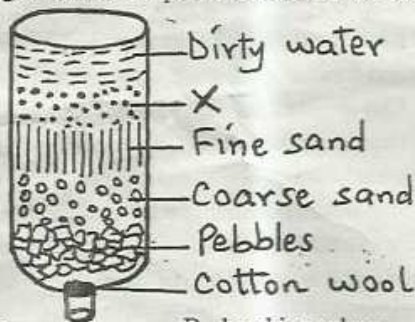 Dirty water
X
Fine sand
Coarse sand
Pebbles
Cotton wool